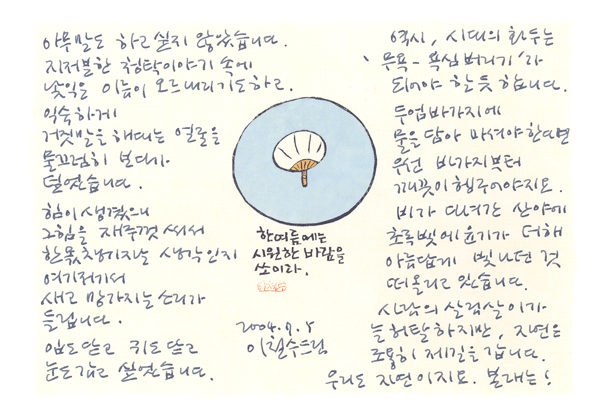 아무말도 하고 싶지 않았습니다.
지저분한 청탁이야기 속에
낯익은 이름이 오르내리기도 하고.
익숙하게
거짓말을 해대는 얼굴을
물끄럼히 보다가
힘이 생겼으니
그힘을 재주껏 써서
한몫챙기자는 생각인지
여기저기서
새고 망가지는 소리가
들립니다.
입도 닫고 귀도 닫고
눈도 감고 싶었습니다.
한여름에는
시원한 바람을
쏘이라.
2004.7.5
이철수드림
역시, 시대의 화두는
'무욕 - 욕심버리기'라
되어야 할듯 합니다.
두엄바가지에
물을 담아 마셔야 한다면
우선 바가지부터
깨끗이 헹구어야지요.
비가 다녀간 산야에
초록빛에 윤기가 더해
아름답게 빛나던 것
떠올리고 있습니다.
사람의 살림살이가
늘 허탈하지만, 자연은
조용히 제길을 갑니다.
우리도 자연이지요. 본래는!